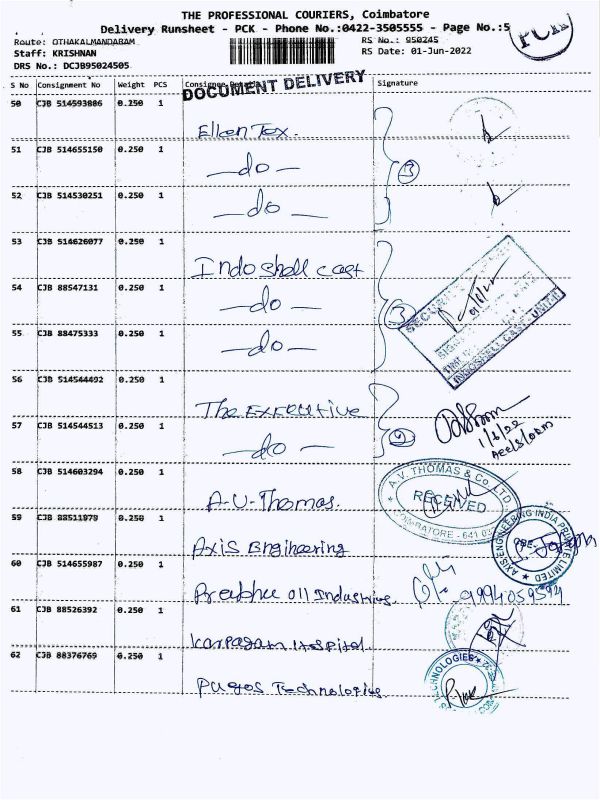 THE PROFESSIONAL COURIERS, Coimbatore
Delivery Runsheet - PCK - Phone No.:0422-3505555 - Page No.:5
PCK
Route: OTHAKALMANDABAM RS No.: 950245
Staff: KRISHNAN RS Date: 01-Jun-2022
DRS No.: DCJB95024505
S No Consignment No Weight PCS Consignee Signature
DOCUMENT DELIVERY
50 CJB 514593886 0.250 1
Ellen Tex.
51 CJB 514655150 0.250 1
—do—
3
52 CJB 514530251 0.250 1
—do—
53 CJB 514626077 0.250 1
Indo shell cast
54 CJB 88547131 0.250 1
—do—
3
55 CJB 88475333 0.250 1
—do—
INDOSHELL CAST
56 CJB 514544492 0.250 1
The Executive
57 CJB 514544513 0.250 1
—do—
2
1/6/22
58 CJB 514603294 0.250 1
A.V. THOMAS & Co. LTD
RECEIVED
COIMBATORE - 641 03
A-V-Thomas.
59 CJB 88511979 0.250 1
AXIS ENGINEERING INDIA PRIVATE LIMITED
Axis Engineering
60 CJB 514655987 0.250 1
oil Industries. 9994059594
61 CJB 88526392 0.250 1
Karpagam Hospital
62 CJB 88376769 0.250 1
TECHNOLOGIES
Pugos Technologies